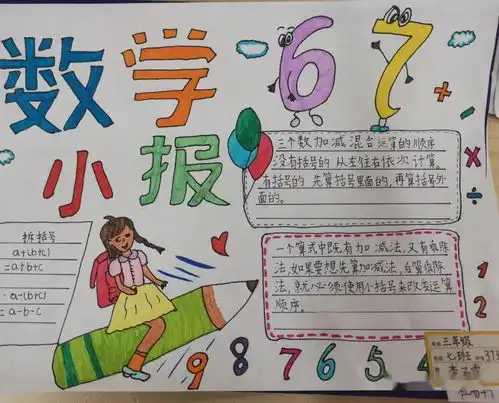 数学
小报
67
三个数加减混合运算的顺序
没有括号的 从左往右依次计算。
有括号的 先算括号里面的,再算括号外
面的。
拆括号
a+(b+c)
=a+b+c
a-(b+c)
=a-b-c
一个算式中既有加 减法,又有乘除
法,如果要想先算加减法,后算乘除
法,就必须使用小括号来改变运算
顺序。
+
-
×
÷
9 8 7 6 5 4
三年级
七班
37号